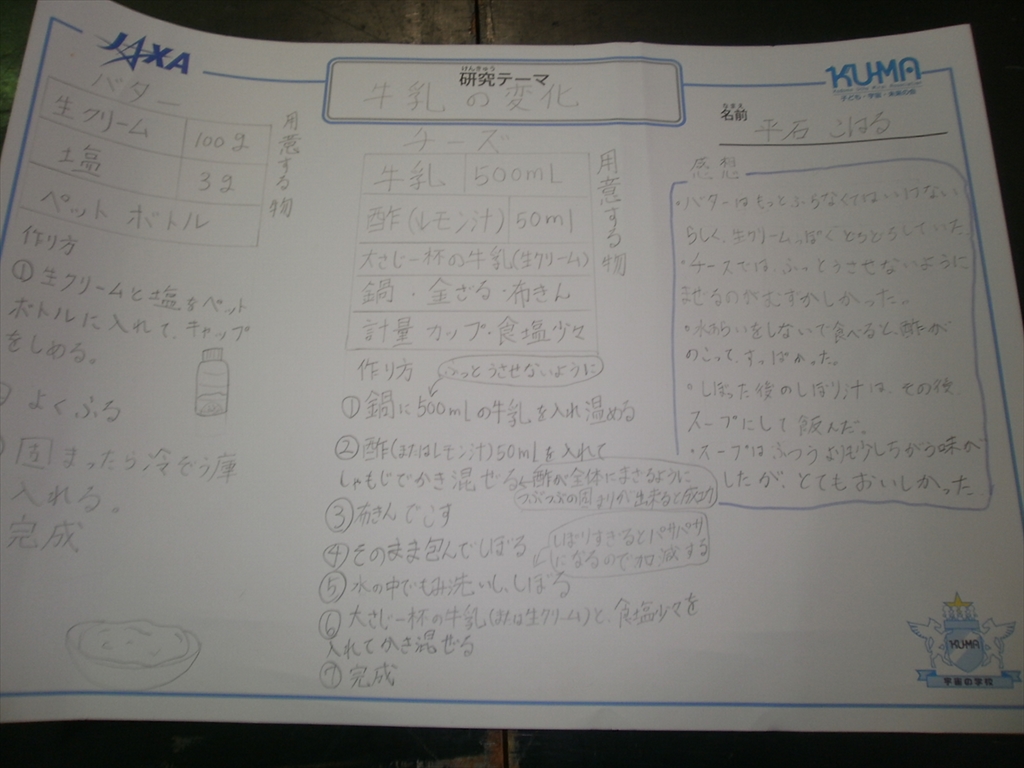 JAXA
けんきゅう
研究テーマ
牛乳の変化
KU-MA
子ども・宇宙・未来の会
なまえ
名前
平石 こはる
バター
用意する物
生クリーム 100g
塩 3g
ペットボトル
作り方
①生クリームと塩をペット
ボトルに入れて、キャップ
をしめる。
よくふる
固まったら冷ぞう庫
入れる。
完成
チーズ
用意する物
牛乳 500mL
酢(レモン汁) 50ml
大さじ一杯の牛乳(生クリーム)
鍋・金ざる・布きん
計量カップ・食塩少々
作り方
ふっとうさせないように
①鍋に500mlの牛乳を入れ温める
②酢(またはレモン汁)50mlを入れて
しゃもじでかき混ぜる
酢が全体にまざるように
つぶつぶの固まりが出来ると
③布きんでこす
④そのまま包んでしぼる
しぼりすぎるとパサパサ
になるので加減する
⑤水の中でもみ洗いし、しぼる
⑥大さじ一杯の牛乳(または生クリーム)と、食塩少々を
入れてかき混ぜる
⑦完成
感想
・バターはもっとふらなくてはいけない
らしく、生クリームっぽくとろとろしていた
・チーズでは、ふっとうさせないように
ませるのがむずかしかった。
・水あらいをしないで食べると、酢が
のこって、すっぱかった。
・しぼった後のしぼり汁は、その後、
スープにして飲んだ。
・スープはふつうよりも少しちがう味が
したが、とてもおいしかった
KUMA
宇宙の学校